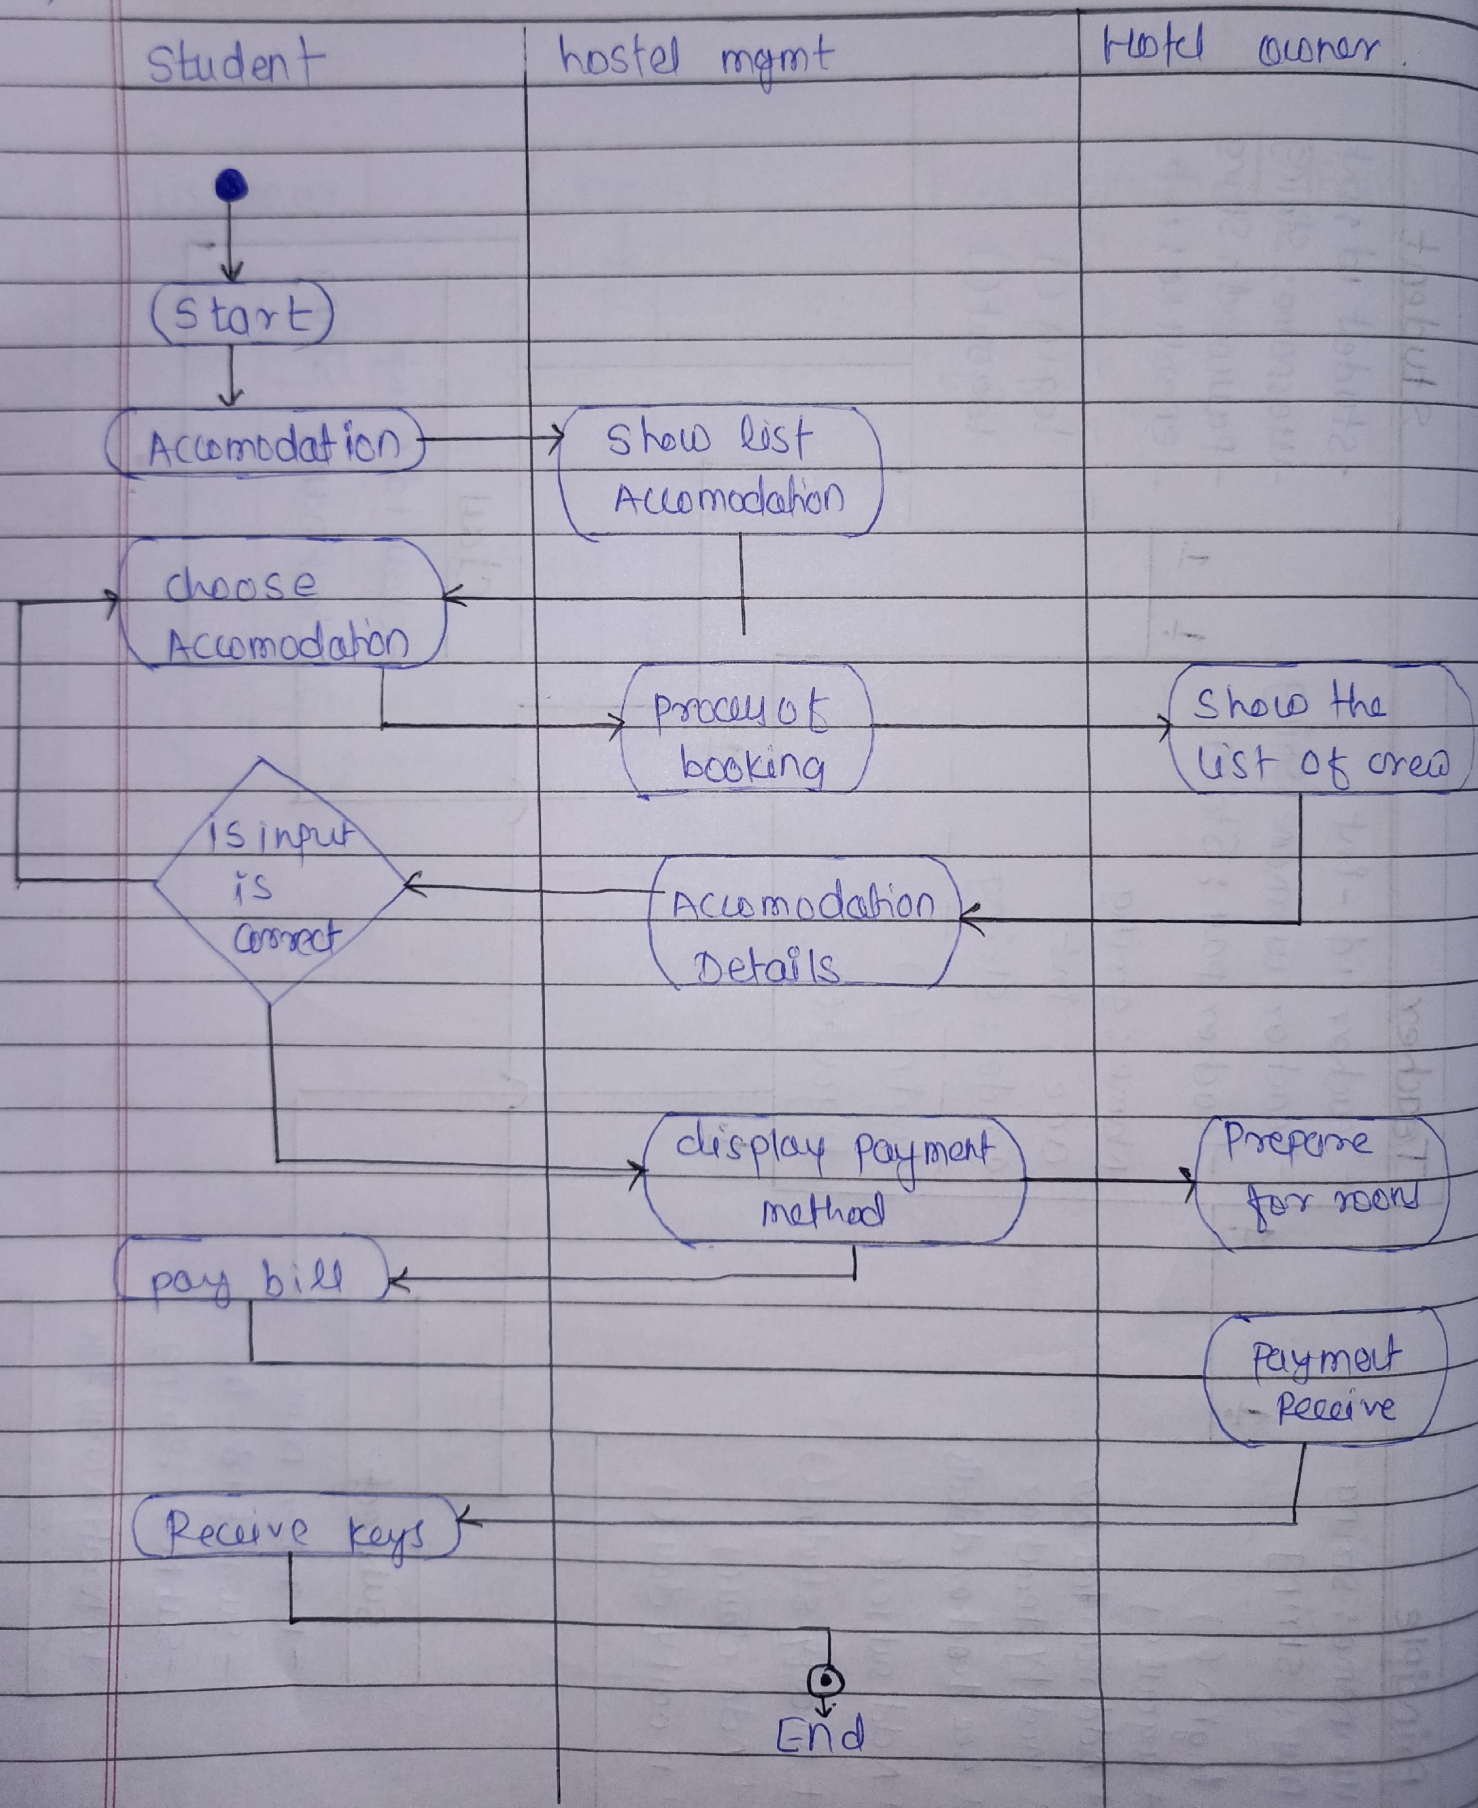 Student
hostel mgmt
Hotel owner.
Start
Accomodation
Show list
Accomodation
choose
Accomodation
process of
booking
Show the
list of crew
is input
is
correct
Accomodation
Details
display payment
method
Prepare
for room
pay bill
Payment
Receive
Receive keys
End